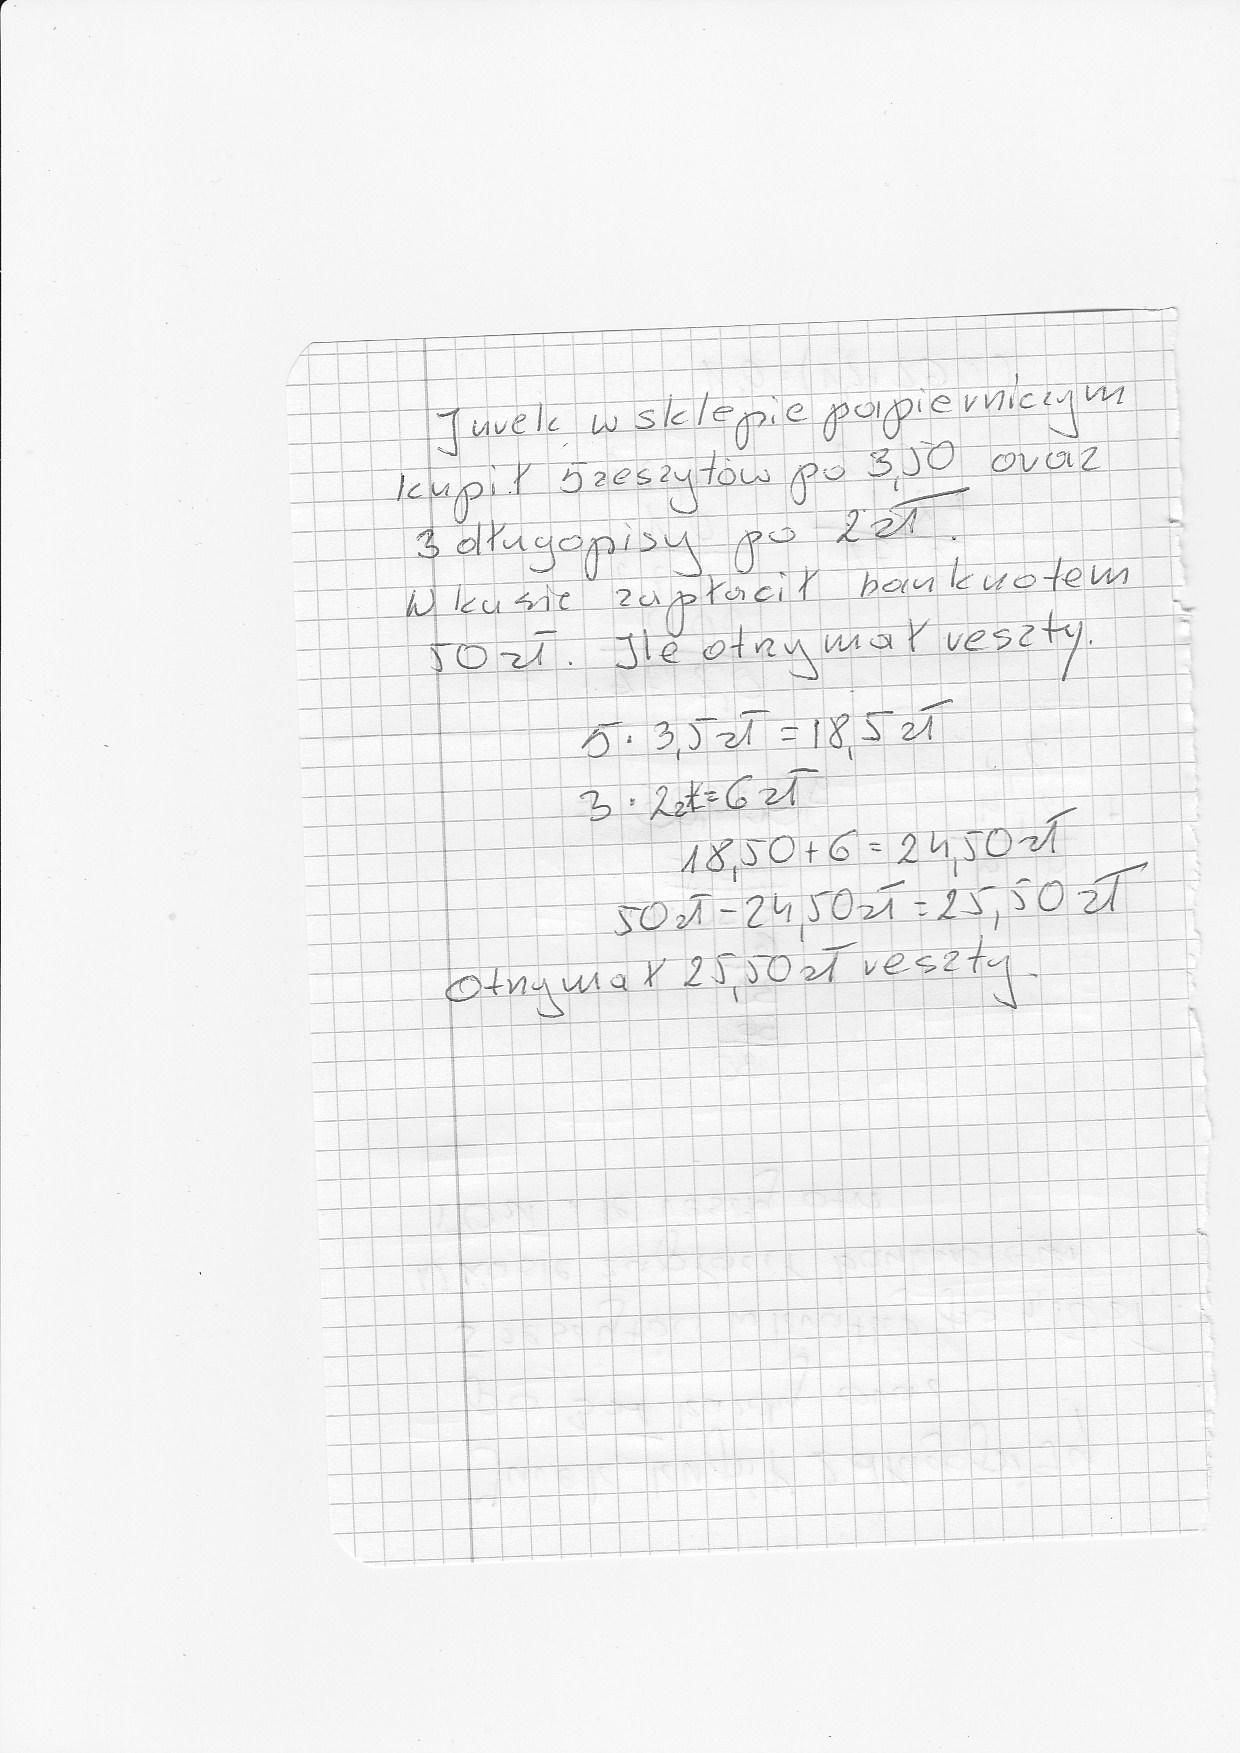 Jurek w sklepie papierniczym
kupił 5 zeszytów po 3,50 oraz
3 długopisy po 2 zł.
W kasie zapłacił banknotem
50 zł. Ile otrzymał reszty.
5 · 3,5 zł = 18,5 zł
3 · 2 zł = 6 zł
18,50 + 6 = 24,50 zł
50 zł - 24,50 zł = 25,50 zł
Otrzymał 25,50 zł reszty.